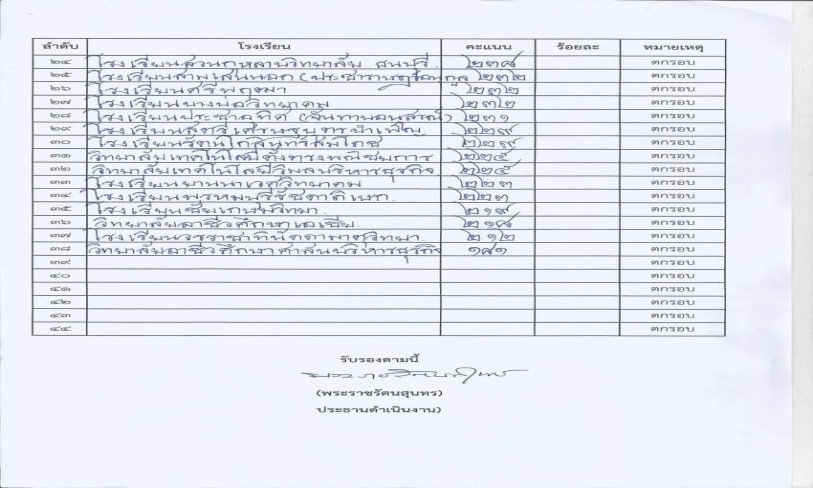 ลำดับ โรงเรียน คะแนน ร้อยละ หมายเหตุ
๒๔ โรงเรียนสวนกุหลาบวิทยาลัย ธนบุรี ๒๓๘ ตกรอบ
๒๕ โรงเรียนสามเสนนอก (ประชาราษฎร์อนุกูล ๒๓๒ ตกรอบ
๒๖ โรงเรียนศรีพฤฒา ๒๓๒ ตกรอบ
๒๗ โรงเรียนบางบ่อวิทยาคม ๒๓๒ ตกรอบ
๒๘ โรงเรียนประชาอุทิศ (จันทาบอนุสรณ์) ๒๓๑ ตกรอบ
๒๙ โรงเรียนสตรีเศรษฐบุตรบำเพ็ญ ๒๒๙ ตกรอบ
๓๐ โรงเรียนรัตนโกสินทร์สมโภช ๒๒๙ ตกรอบ
๓๑ วิทยาลัยเทคโนโลยีตั้งตรงพณิชยการ ๒๒๕ ตกรอบ
๓๒ วิทยาลัยเทคโนโลยีวิมลบริหารธุรกิจ ๒๒๕ ตกรอบ
๓๓ โรงเรียนยานนาเวศวิทยาคม ๒๒๓ ตกรอบ
๓๔ โรงเรียนพรหมบุรีรัชดาภิเษก ๒๒๓ ตกรอบ
๓๕ โรงเรียนชัยเกษมวิทยา ๒๑๙ ตกรอบ
๓๖ วิทยาลัยอาชีวศึกษาเอเซีย ๒๑๘ ตกรอบ
๓๗ โรงเรียนวชรราชาทินัดดามาตุวิทยา ๒๑๒ ตกรอบ
๓๘ วิทยาลัยอาชีวศึกษาศาสนบริหารธุรกิจ ๑๘๑ ตกรอบ
๓๙ ตกรอบ
๔๐ ตกรอบ
๔๑ ตกรอบ
๔๒ ตกรอบ
๔๓ ตกรอบ
๔๔ ตกรอบ
รับรองตามนี้
(พระราชรัตนสุนทร)
ประธานดำเนินงาน)